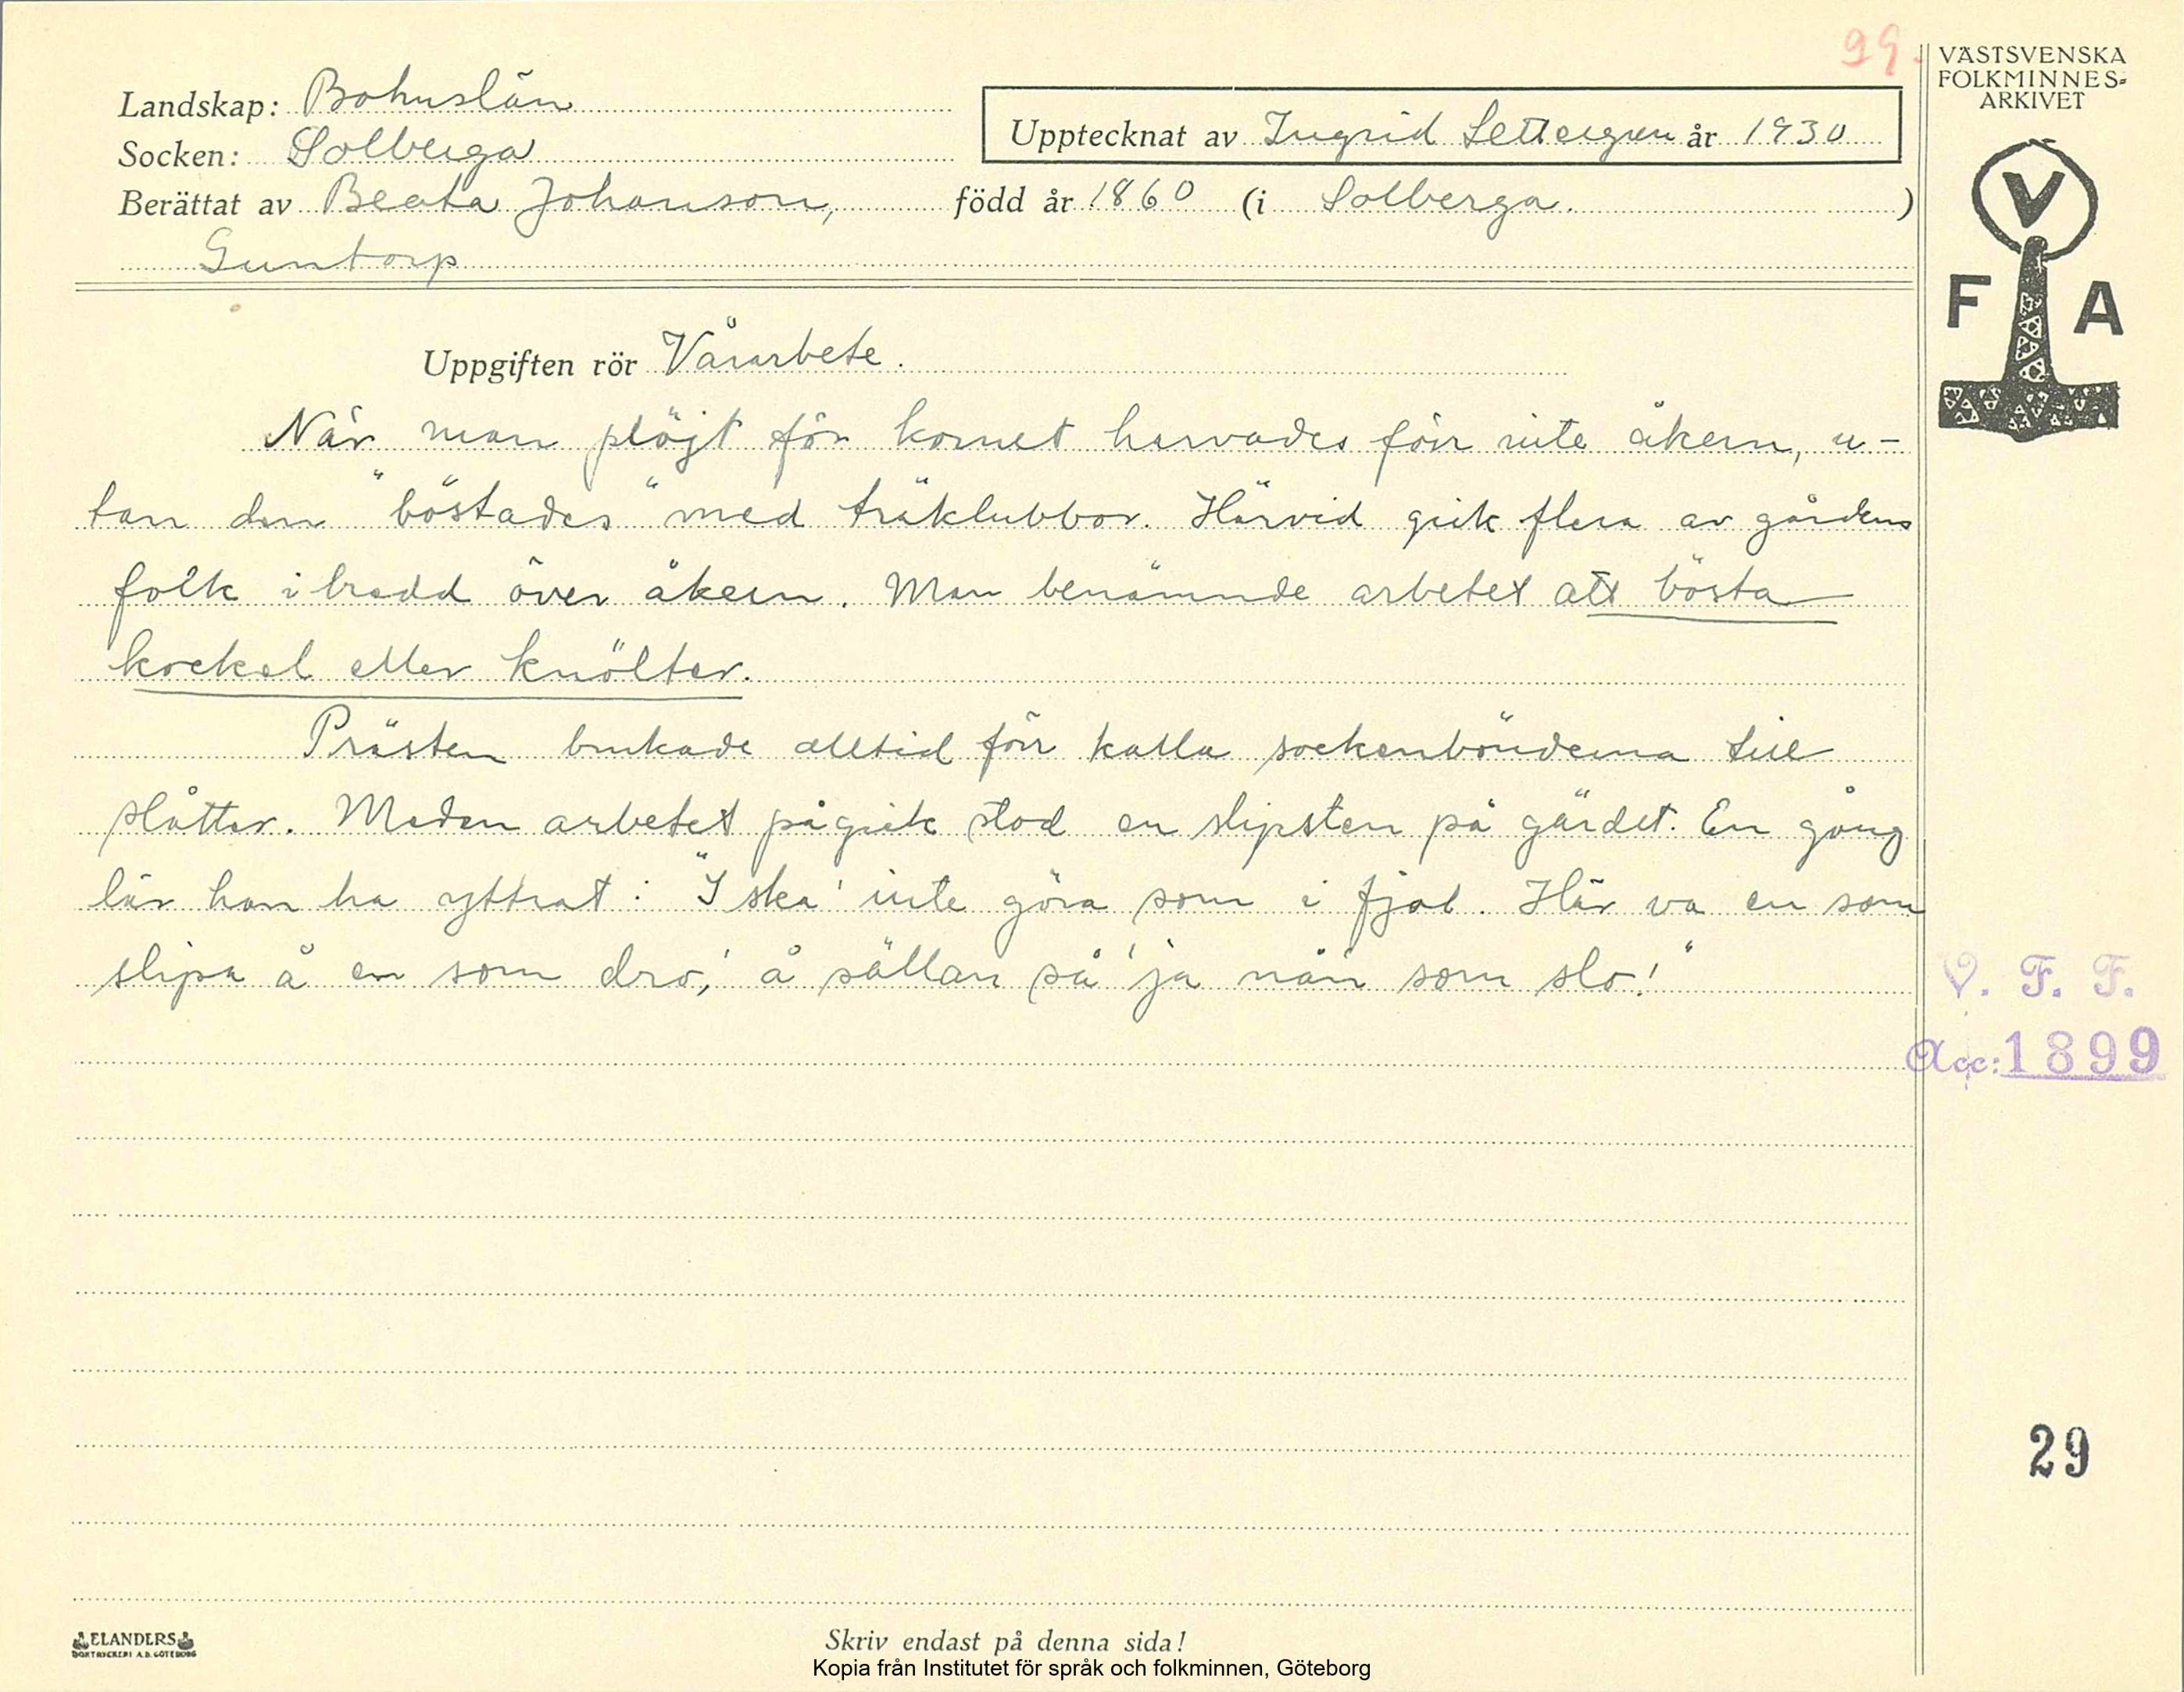 99.
VÄSTSVENSKA
FOLKMINNES-
ARKIVET
Landskap: Bohuslän
Socken: Solberga
Upptecknat av Ingrid Settergren år 1930
Berättat av Beata Johanson, född år 1860 (i Solberga. )
Guntorp
V
F A
Uppgiften rör Vårarbete.
När man plöjt för kornet harvades förr inte åkern, u-
tan den "böstades" med träklubbor. Härvid gick flera av gårdens
folk i bredd över åkern. Man benämnde arbetet att bösta
kockel eller knölter.
Prästen brukade alltid förr kalla sockenbönderna till
slåtter. Medan arbetet pågick stod en slipsten på gärdet. En gång
lär han ha yttrat: "I ska' inte göra som i fjol. Här va en som
slipa å en som dro,' å sällan så' ja nån som slo!"
V. F. F.
Acc: 1899
29
ELANDERS
BOKTRYCKERI A.B. GÖTEBORG
Skriv endast på denna sida!
Kopia från Institutet för språk och folkminnen, Göteborg